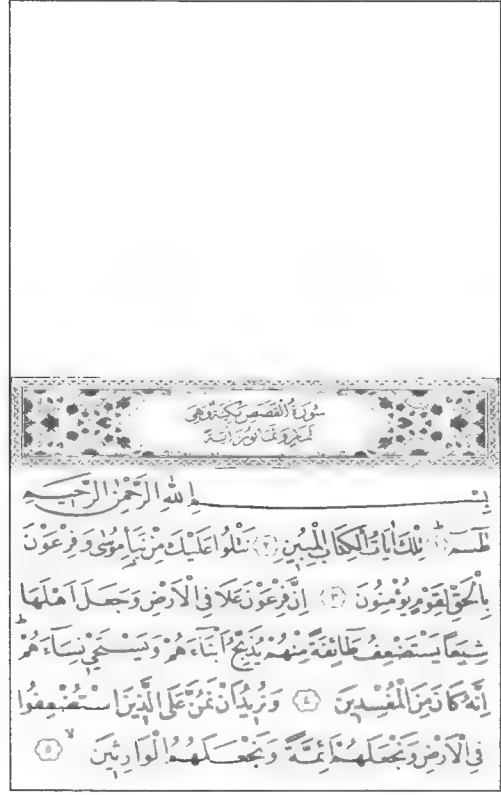 سُورَةُ الْقَصَصِ مَكِّيَّةٌ وَهِيَ
ثَمَانٍ وَثَمَانُونَ اٰيَةً
بِسْمِ اللّٰهِ الرَّحْمٰنِ الرَّحِيمِ
طٰسٓمٓ ﴿١﴾ تِلْكَ اٰيَاتُ الْكِتَابِ الْمُبِينِ ﴿٢﴾ نَتْلُوا عَلَيْكَ مِنْ نَبَإِ مُوسٰى وَفِرْعَوْنَ
بِالْحَقِّ لِقَوْمٍ يُؤْمِنُونَ ﴿٣﴾ اِنَّ فِرْعَوْنَ عَلَا فِي الْاَرْضِ وَجَعَلَ اَهْلَهَا
شِيَعاً يَسْتَضْعِفُ طَٓائِفَةً مِنْهُمْ يُذَبِّحُ اَبْنَٓاءَهُمْ وَيَسْتَحْيٖ نِسَٓاءَهُمْ
اِنَّهُ كَانَ مِنَ الْمُفْسِدِينَ ﴿٤﴾ وَنُرِيدُ اَنْ نَمُنَّ عَلَى الَّذِينَ اسْتُضْعِفُوا
فِي الْاَرْضِ وَنَجْعَلَهُمْ اَئِمَّةً وَنَجْعَلَهُمُ الْوَارِثِينَ ﴿٥﴾